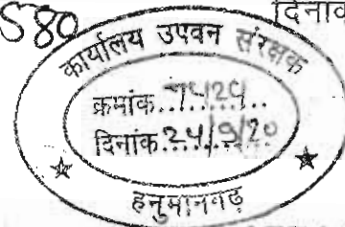 580
दिनांक
कार्यालय उपवन संरक्षक
क्रमांक..7424..
दिनांक.24/9/20
हनुमानगढ़